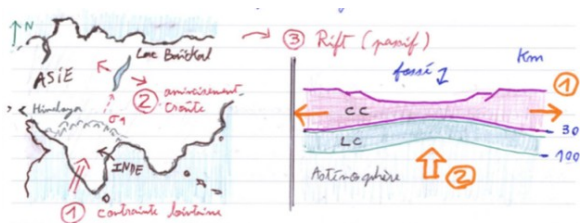 N
Lac Baïkal
ASIE
② amincissement croûte
Himalaya
σ1
INDE
① contrainte lointaine
③ Rift (passif)
Km
fossé
①
CC
30
LC
100
②
Asténosphère